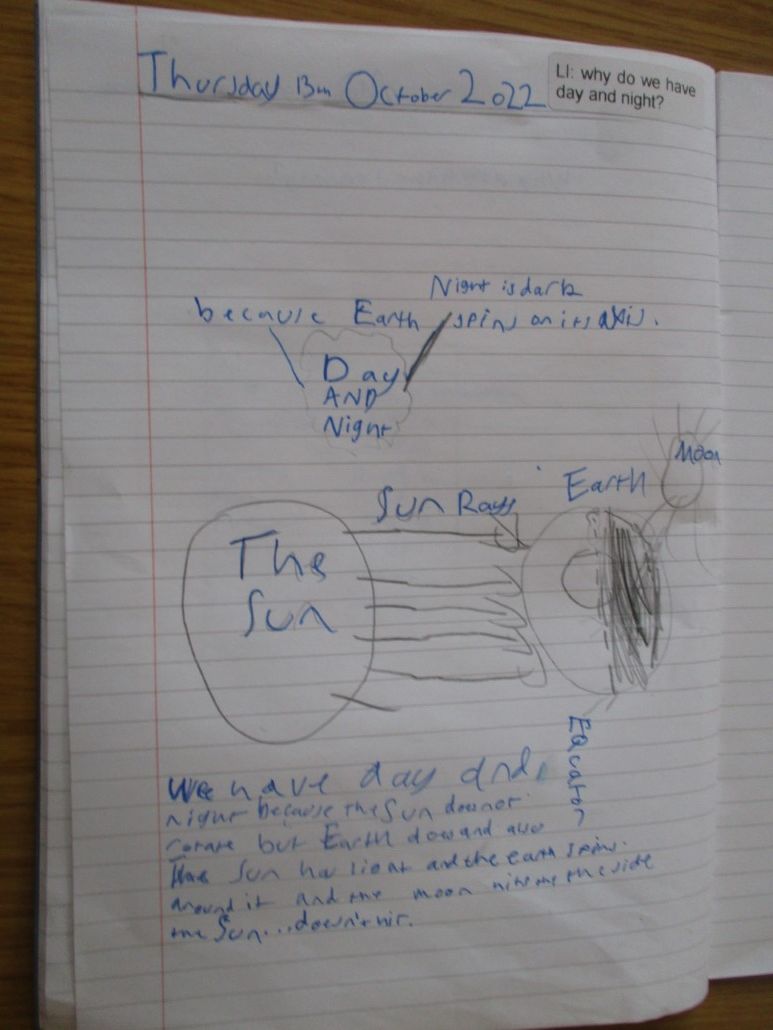 Thursday 13th October 2022
LI: why do we have
day and night?
Night is dark
because Earth spins on its axis.
Day
AND
Night
Moon
Earth
Sun Rays
The
Sun
Equator
We have day and
night because the Sun does not
rotate but Earth does and also
the Sun has light and the earth spins
around it and the moon hits the the side
the Sun...doesn't hit.